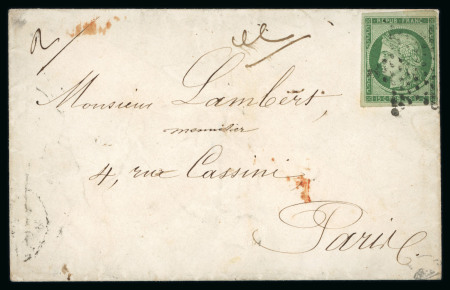 REPUB. FRANC
Monsieur Lambert,
menuisier
4, rue Cassini
Paris